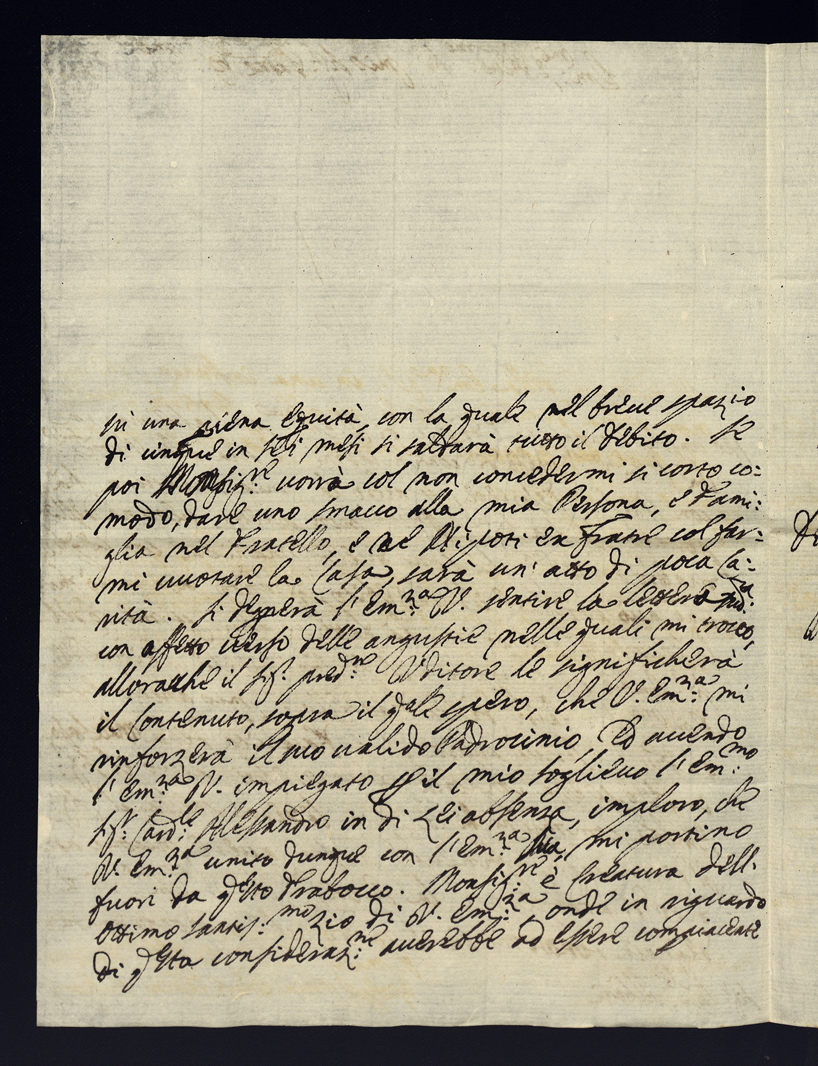 in una piena equità, con la quale nel breve spazio
di cinque in sei mesi si saldarà tutto il debito. Se
poi Monsig.re vorrà col non concedermi si corto co=
modo, dare uno smacco alla mia Persona, e Fami=
glia nel Fratello, e ne Nipoti ex Fratre col far=
mi vuotare la Casa, sarà un' atto di poca Ca=
rità. Si degnerà l'Em.za V. sentire la lettera
con affetto verso delle angustie nelle quali mi trovo,
alloraché il Sig.r pred.to Uditore le significherà
il Contenuto, sopra il q.ale spero, che V. Em.za mi
rinforzerà il suo valido Padrocinio, Ed avendo
l'Em.za V. impiegato p il mio sollievo l'Em.mo
Sig.r Card.le Alessandro in di Lei absenza, imploro, che
V. Em.za unito dunque con l'Em.za Sua, mi portino
fuori da q.esto Trabocco. Monsig.re è Creatura dell'
Ottimo Santis.mo Zio di V. Em.za onde in riguardo
di q.esta consideraz.ne averebbe ad essere compiacente